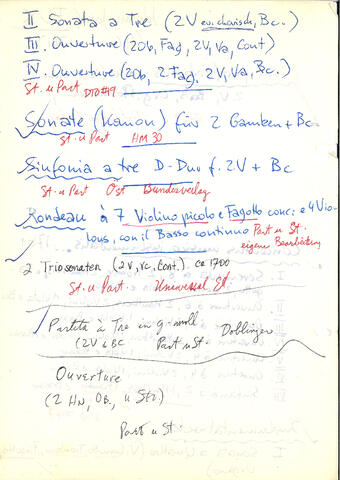 II Sonata a Tre (2V ev. chorisch, Bc.)
III. Ouverture (2Ob, Fag, 2V, Va, Cont)
IV. Ouverture (2Ob, 2 Fag. 2V, Va, Bc.)
St. u Part DTÖ#19
Sonate (Kanon) für 2 Gamben + Bc
St. u Part HM 30
Sinfonia a tre D-Dur f. 2V + Bc
St. u Part Öst Bundesverlag
Rondeau à 7 Violino piccolo e Fagotto conc. e 4 Vio-
lons, con il Basso continuo Part u St.
eigene Bearbeitung
2 Triosonaten (2V, Vc, Cont.) ca 1700
St. u Part Universal Ed
Partita à Tre in g-moll
(2V & BC Part u St. Doblinger
Ouverture
(2 Hn, OB., u Str)
Part u St.